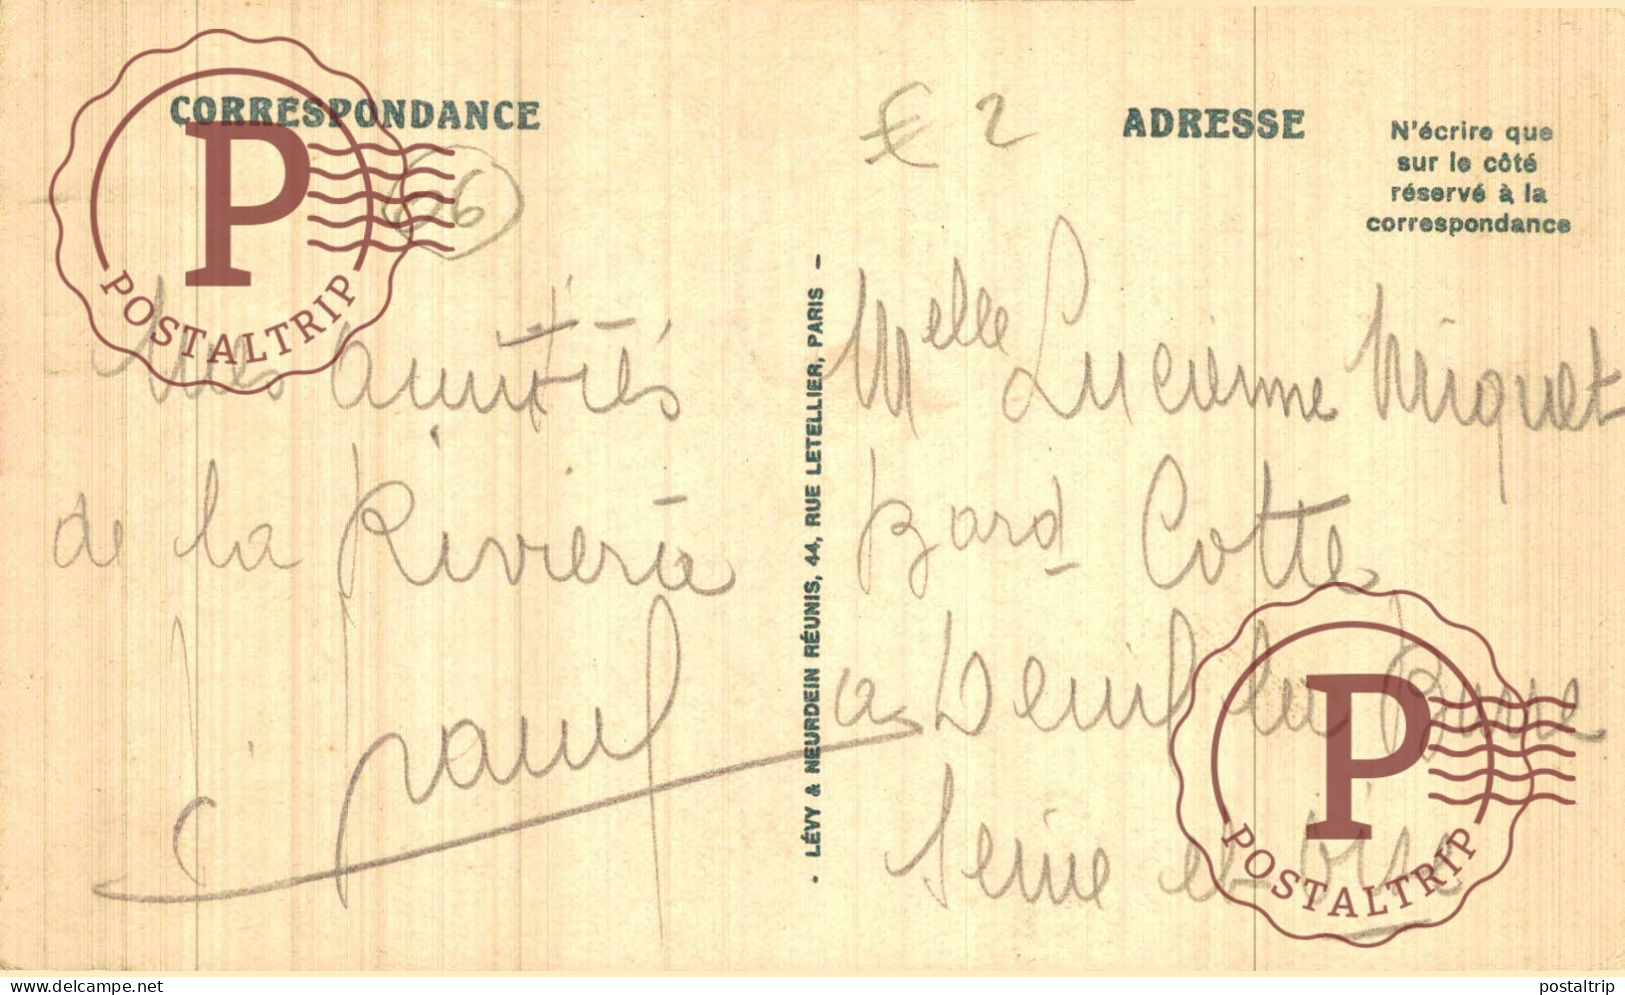 CORRESPONDANCE
06
Mes amitiés
de la Riviera
Paul
- LÉVY & NEURDEIN RÉUNIS, 44, RUE LETELLIER, PARIS -
€ 2
ADRESSE
N'écrire que
sur le côté
réservé à la
correspondance
Melle Lucienne Miquet
Bard Cotte
a Deuil la Barre
Seine et Oise
P
POSTALTRIP
P
POSTALTRIP
delcampe.net
postaltrip